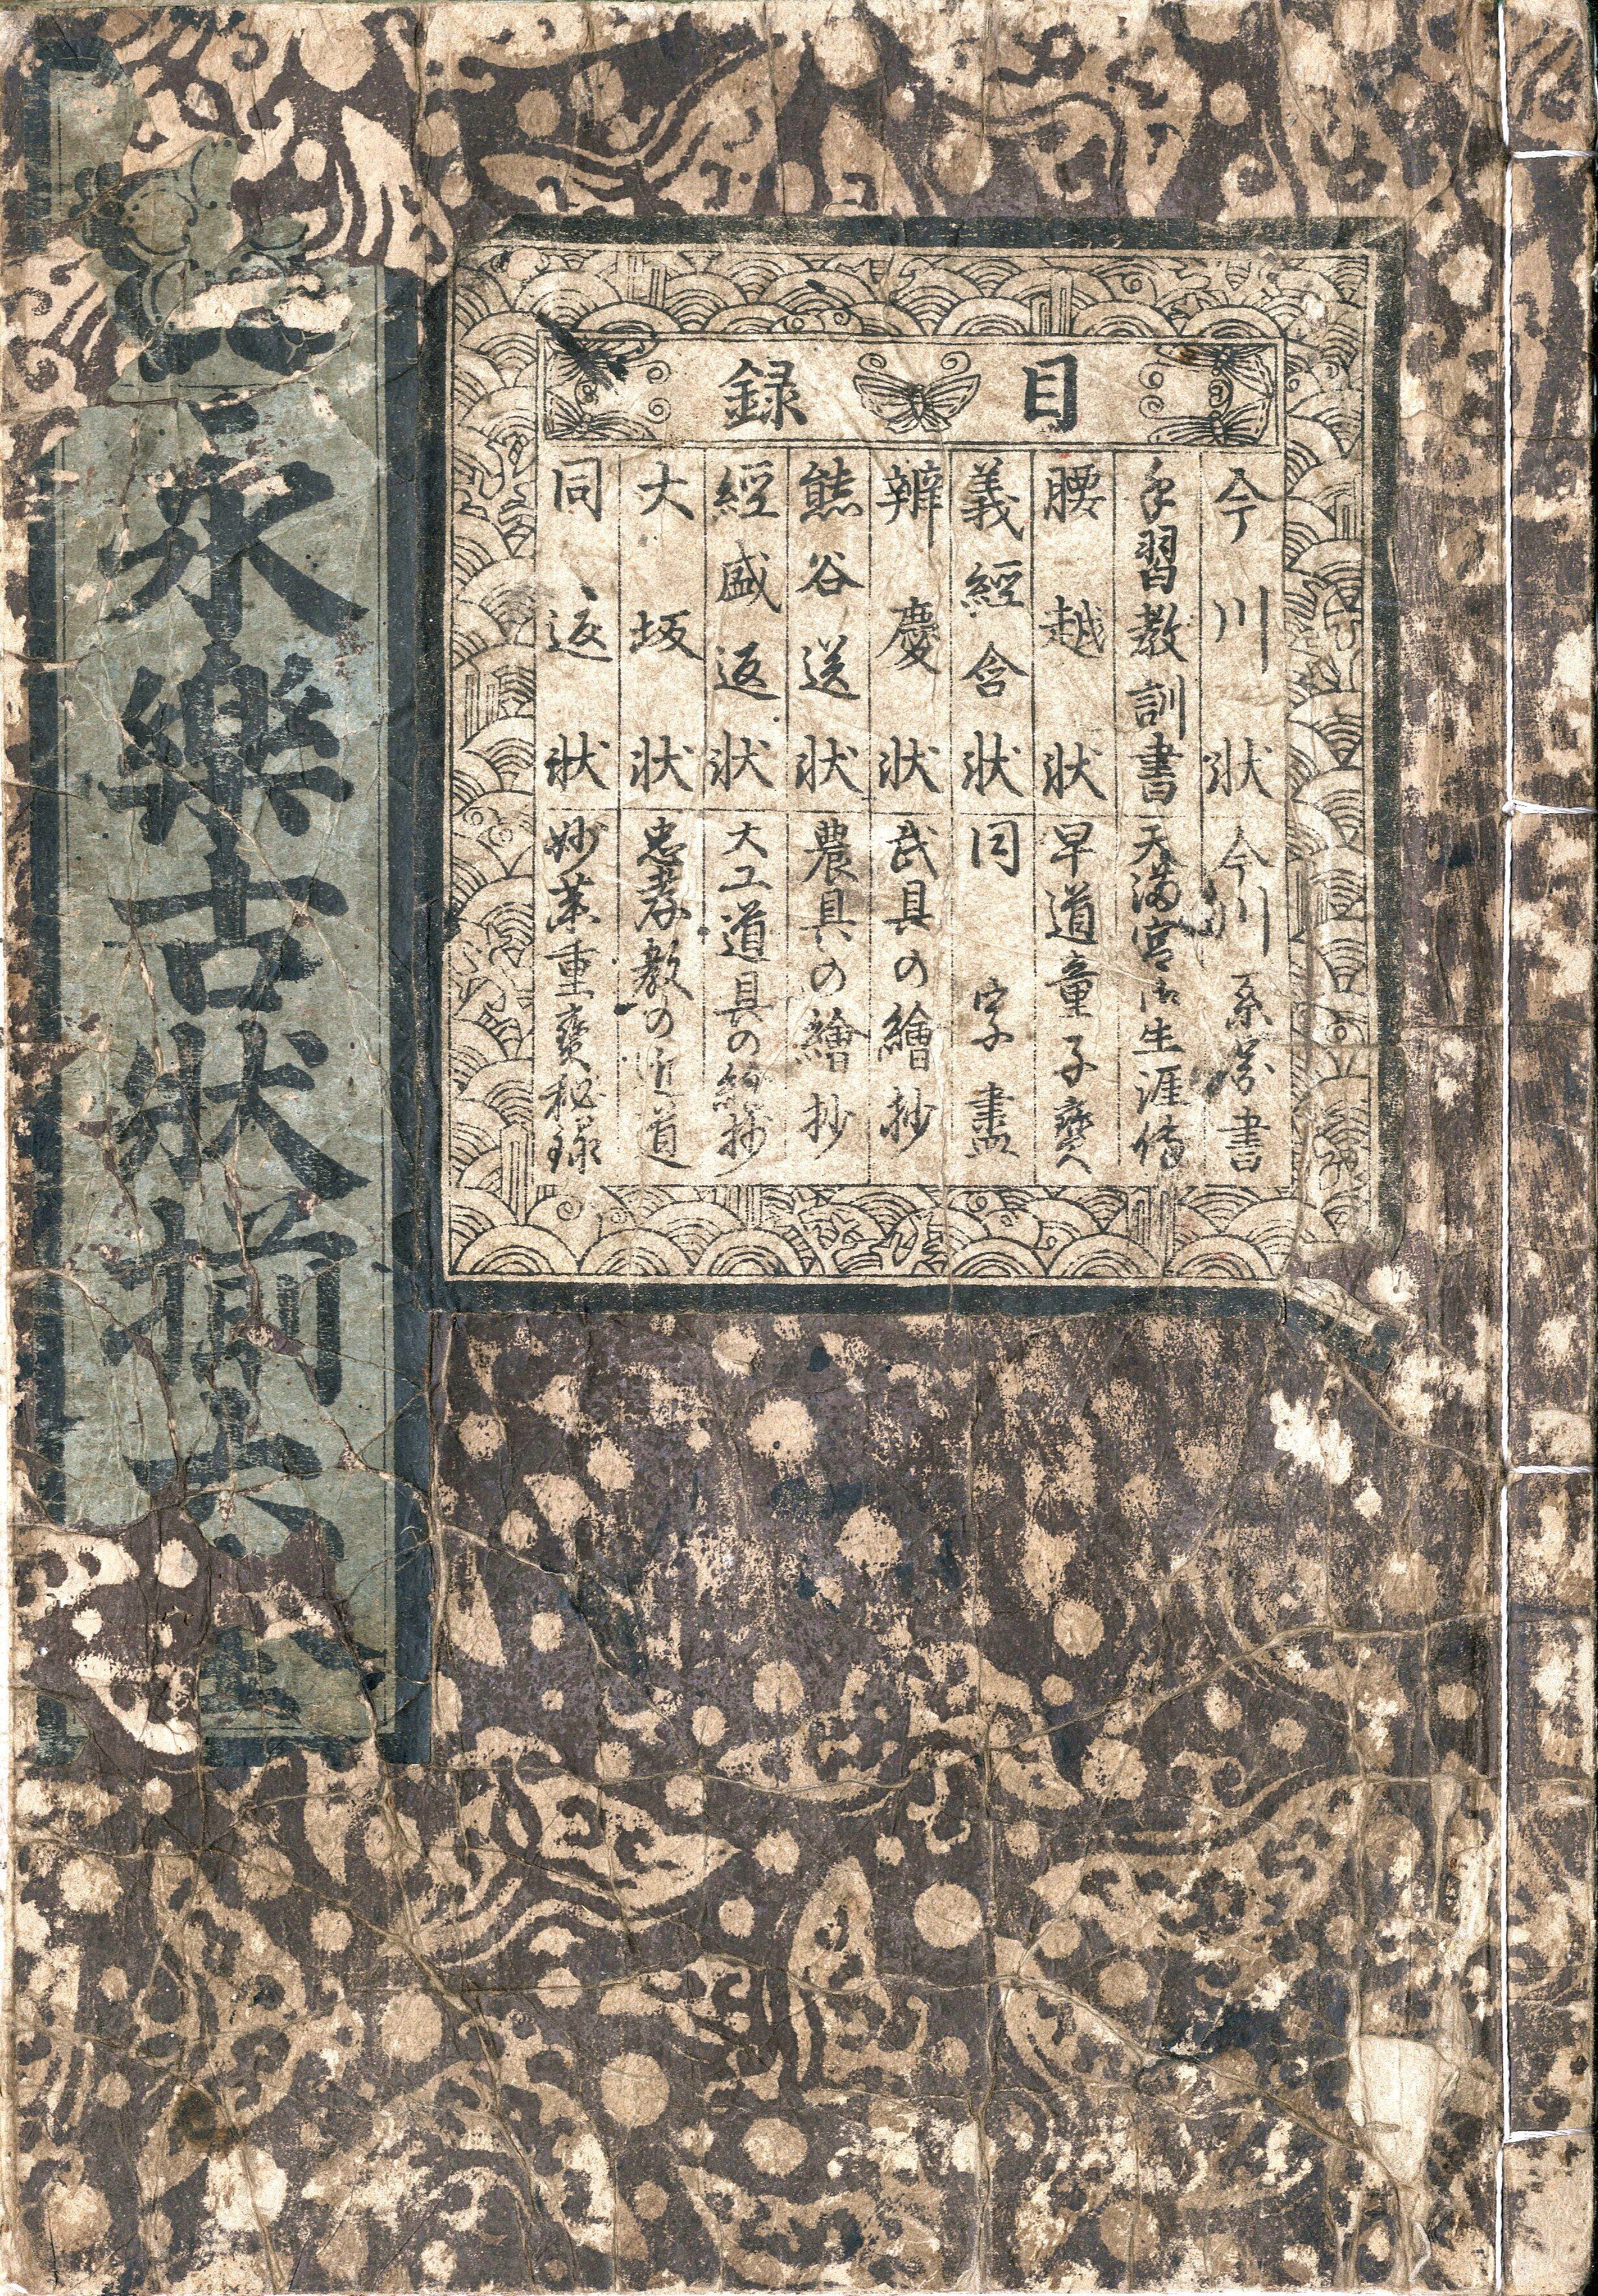 目録
今川状
手習教訓書
腰越状
義經含状
辨慶状
熊谷送状
經盛返状
大坂状
同返状
今川系啚書
天満宮御生涯傳
早道童子寳
同字盡
武具の繪抄
農具の繪抄
大工道具の繪抄
忠孝教の近道
妙薬重寳秘録
永樂古状揃大